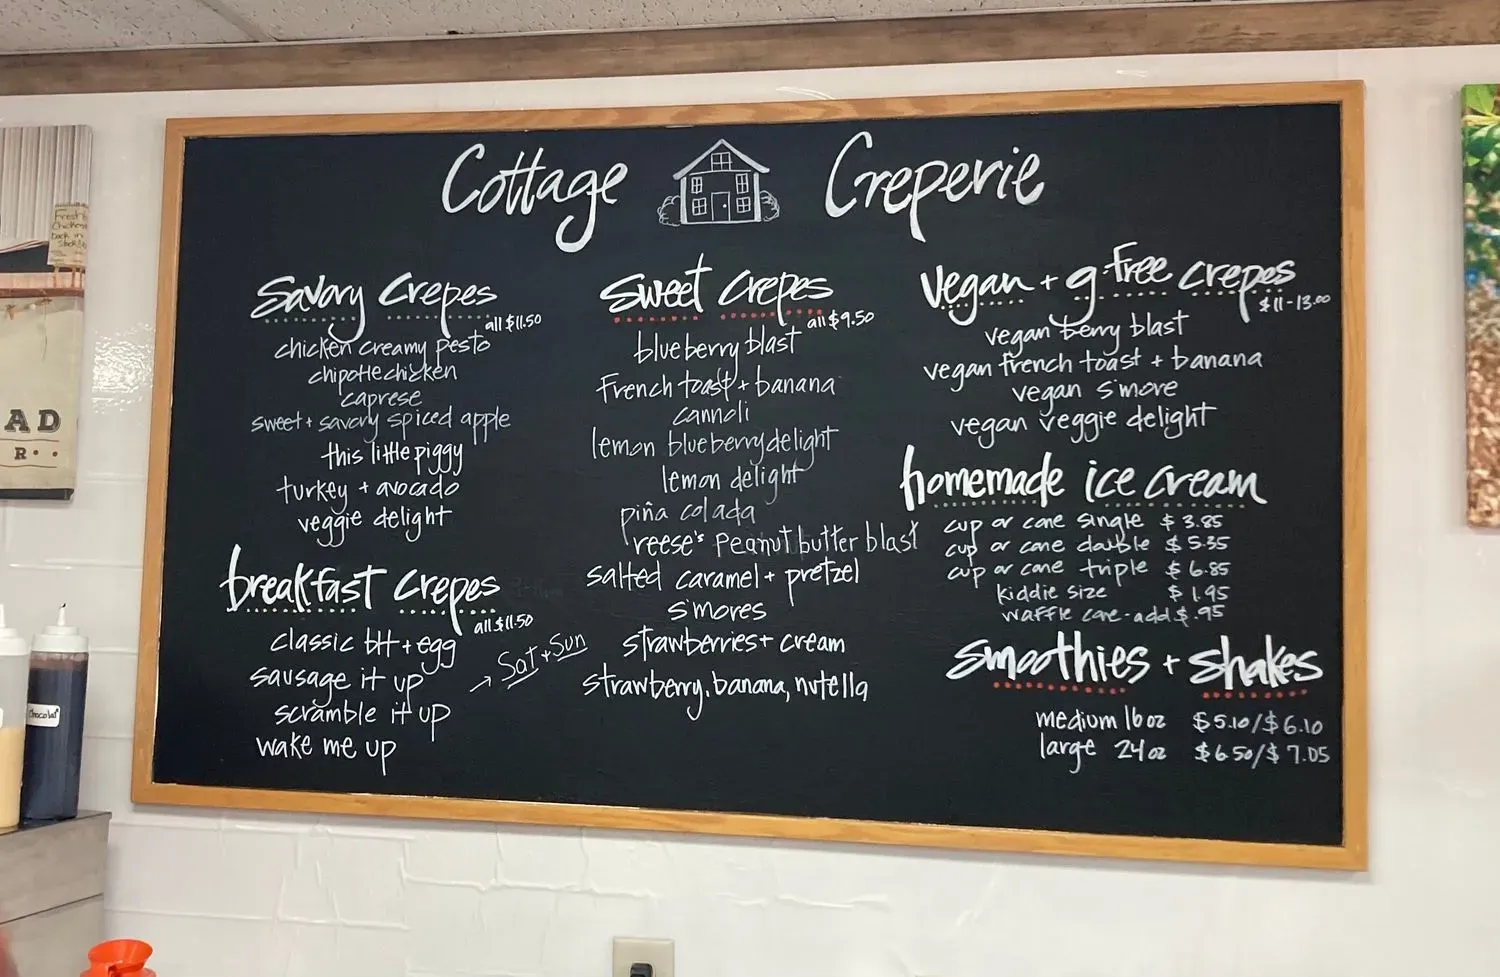 Cottage Creperie
Savory Crepes
all $11.50
chicken creamy pesto
chipotle chicken
caprese
sweet + savory spiced apple
this little piggy
turkey + avocado
veggie delight
breakfast crepes
all $11.50
classic blt + egg
sausage it up
scramble it up
wake me up
→ Sat + Sun
Sweet Crepes
all $9.50
blueberry blast
French toast + banana
cannoli
lemon blueberry delight
lemon delight
piña colada
reese's peanut butter blast
salted caramel + pretzel
s'mores
strawberries + cream
strawberry, banana, nutella
Vegan + g free crepes
$11-13.00
vegan berry blast
vegan french toast + banana
vegan s'more
vegan veggie delight
homemade ice cream
cup or cone single $3.85
cup or cone double $5.35
cup or cone triple $6.85
kiddie size $1.95
waffle cone - add $.95
Smoothies + Shakes
medium 16oz $5.10/$6.10
large 24oz $6.50/$7.05
Fresh
Chickens
back in
Stock
AD
R
Chocolat